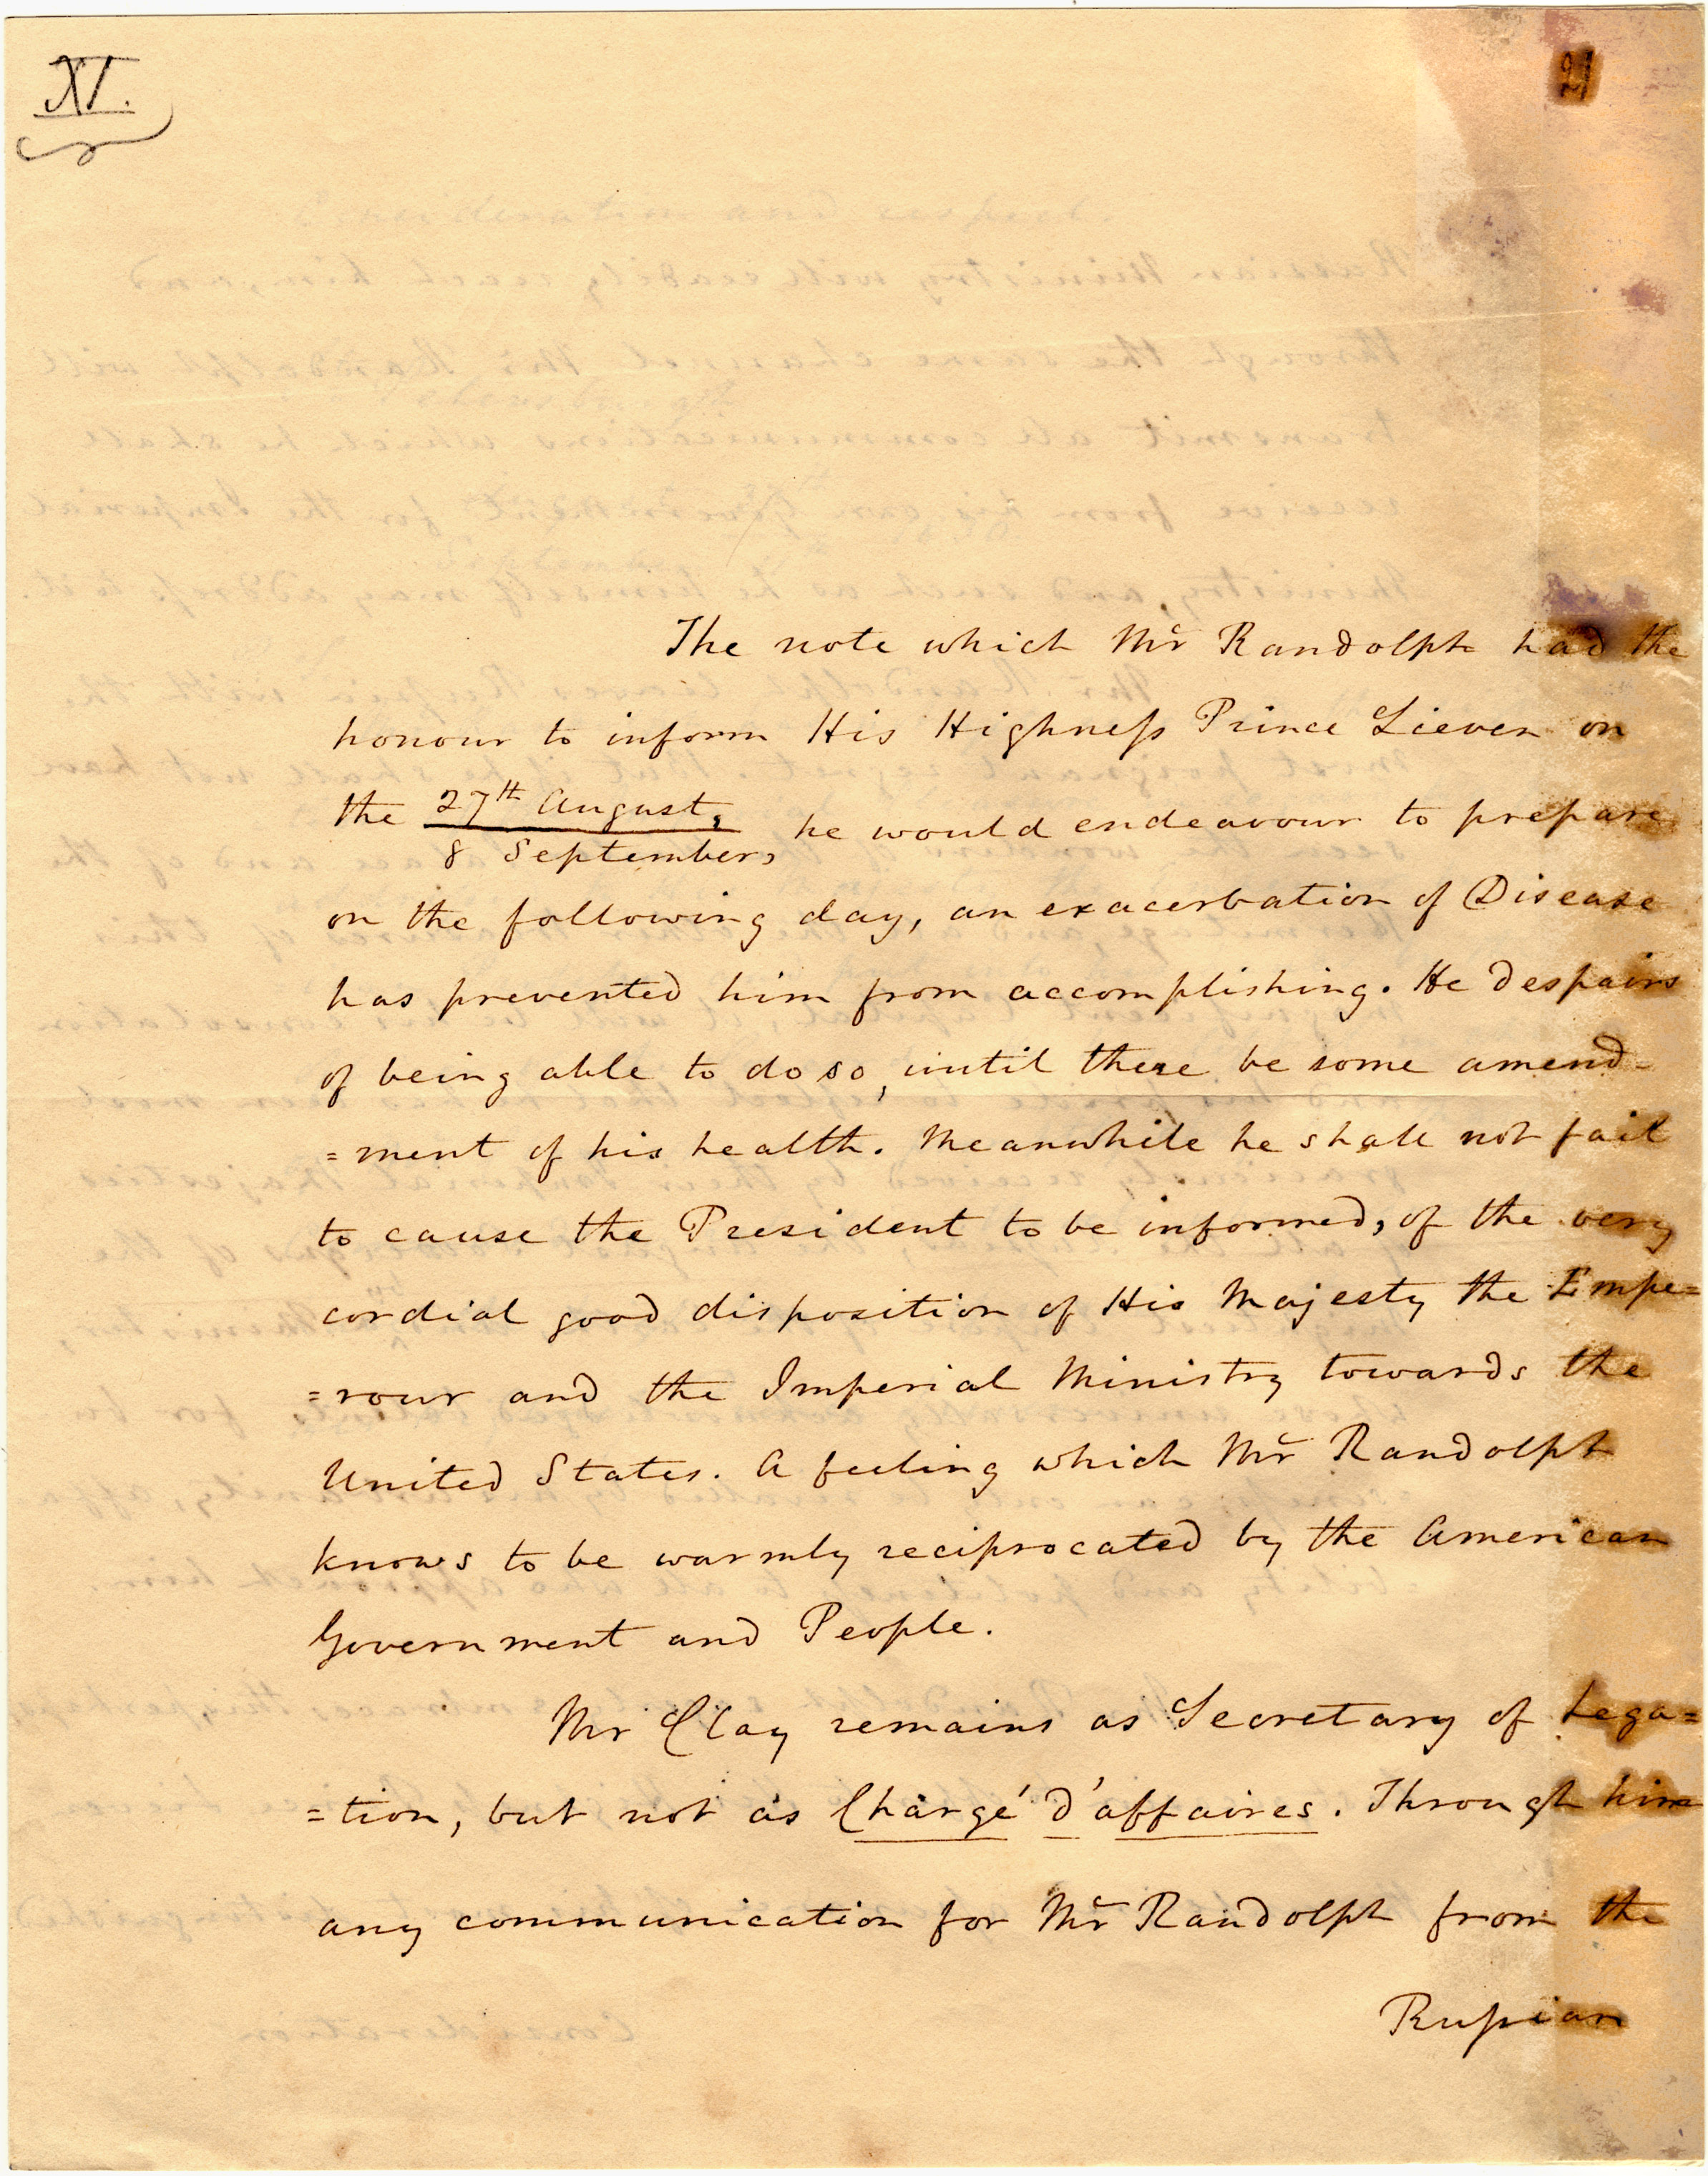 XI.
21
The note which Mr Randolph had the
honour to inform His Highneſs Prince Lieven on
the 27th August,
8 September, he would endeavour to prepare
on the following day, an exacerbation of Disease
has prevented him from accomplishing. He despairs
of being able to do so, until there be some amend-
=ment of his health. Meanwhile he shall not fail
to cause the President to be informed, of the very
cordial good disposition of His Majesty the Empe=
=rour and the Imperial Ministry towards the
United States. A feeling which Mr Randolph
knows to be warmly reciprocated by the American
Government and People.
Mr Clay remains as Secretary of Lega=
=tion, but not as Chargé d'affaires. Through him
any communication for Mr Randolph from the
Ruſsian